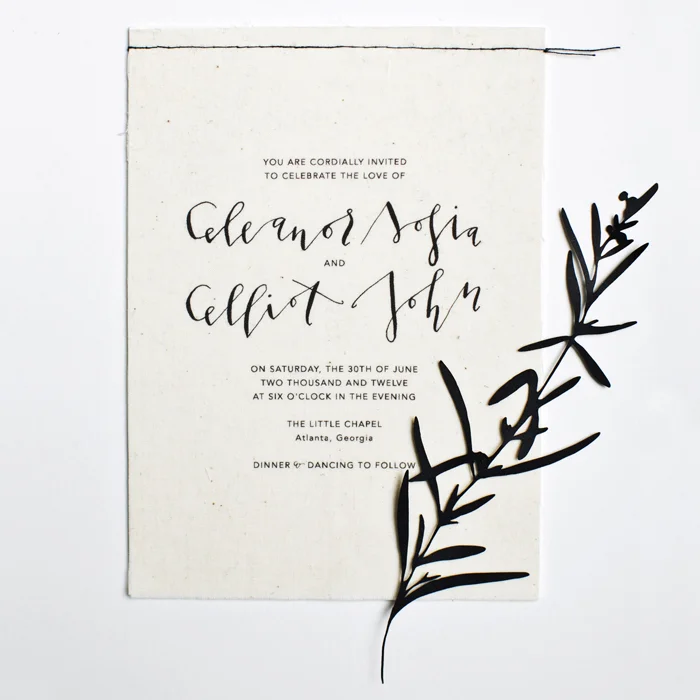 YOU ARE CORDIALLY INVITED
TO CELEBRATE THE LOVE OF
Eleanor Sofia
AND
Elliot John
ON SATURDAY, THE 30TH OF JUNE
TWO THOUSAND AND TWELVE
AT SIX O'CLOCK IN THE EVENING
THE LITTLE CHAPEL
Atlanta, Georgia
DINNER & DANCING TO FOLLOW